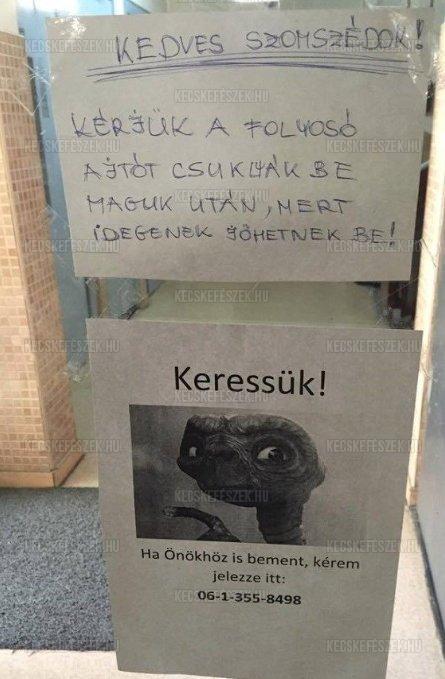 KEDVES SZOMSZÉDOK!
KÉRJÜK A FOLYOSÓ
AJTÓT CSUKJÁK BE
MAGUK UTÁN, MERT
IDEGENEK JÖHETNEK BE!
Keressük!
Ha Önökhöz is bement, kérem
jelezze itt:
06-1-355-8498
KECSKEFESZEK.HU